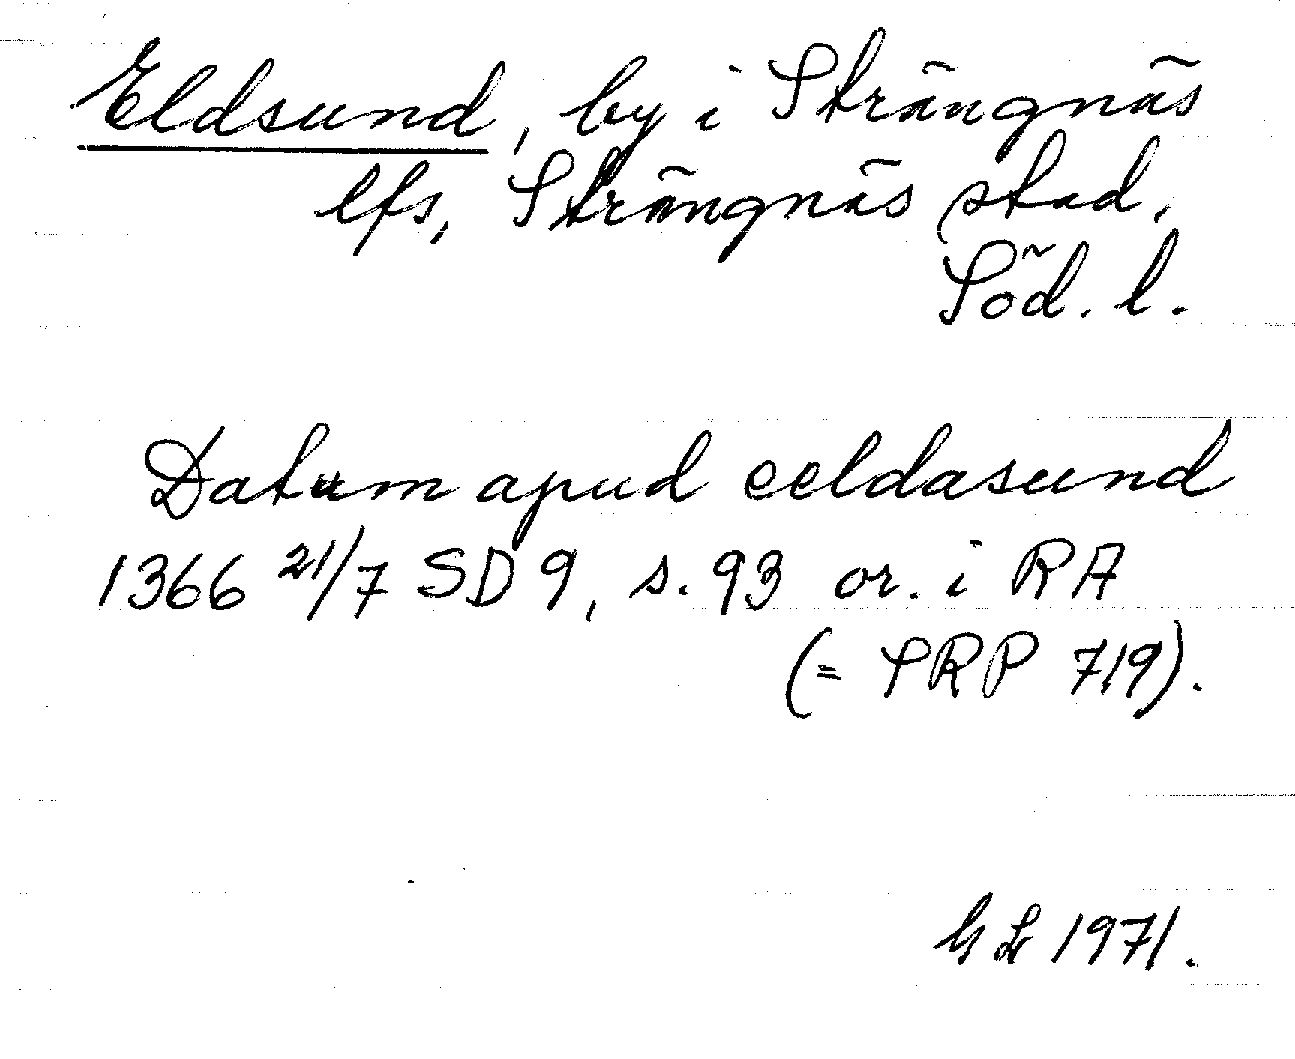 Eldsund, by i Strängnäs
lfs, Strängnäs stad,
Söd. l.
Datum apud eeldasund
1366 21/7 SD 9, s. 93 or. i RA
(= SRP 719).
1971.